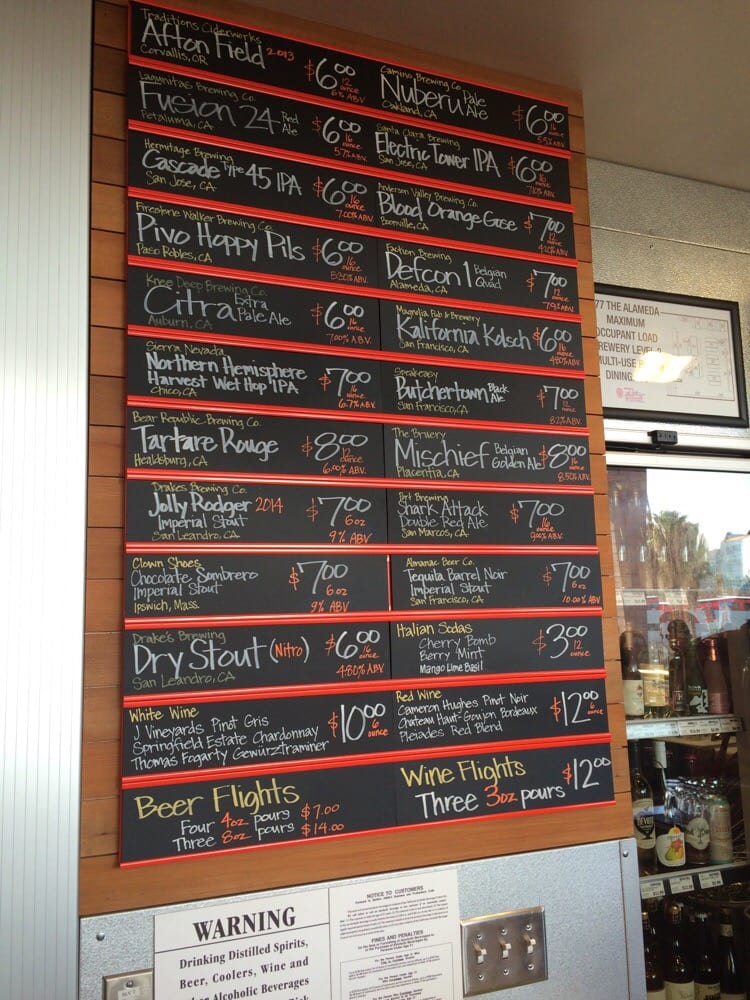 Traditions Ciderworks
Afton Field 2013
Corvallis, OR
$6.00
12 ounce
6% ABV
Camino Brewing Co.
Nuberu Pale Ale
Oakland, CA
$6.00
16 ounce
5.5% ABV
Lagunitas Brewing Co.
Fusion 24 Red Ale
Petaluma, CA
$6.00
16 ounce
5.7% ABV
Santa Clara Brewing
Electric Tower IPA
San Jose, CA
$6.00
16 ounce
7.0% ABV
Hermitage Brewing
Cascade Type 45 IPA
San Jose, CA
$6.00
16 ounce
7.00% ABV
Anderson Valley Brewing Co.
Blood Orange Gose
Boonville, CA
$7.00
12 ounce
4.20% ABV
Firestone Walker Brewing Co.
Pivo Hoppy Pils
Paso Robles, CA
$6.00
16 ounce
5.30% ABV
Faction Brewing
Defcon 1 Belgian Quad
Alameda, CA
$7.00
12 ounce
Knee Deep Brewing Co.
Citra Extra Pale Ale
Auburn, CA
$6.00
16 ounce
7.00% ABV
Magnolia Pub & Brewery
Kalifornia Kolsch
San Francisco, CA
$6.00
16 ounce
4.80% ABV
Sierra Nevada
Northern Hemisphere
Harvest Wet Hop IPA
Chico, CA
$7.00
16 ounce
6.7% ABV
Speakeasy
Butchertown Black Ale
San Francisco, CA
$7.00
12 ounce
8.2% ABV
Bear Republic Brewing Co.
Tartare Rouge
Healdsburg, CA
$8.00
12 ounce
6.00% ABV
The Bruery
Mischief Belgian Golden Ale
Placentia, CA
$8.00
16 ounce
8.50% ABV
Drakes Brewing Co.
Jolly Rodger 2014
Imperial Stout
San Leandro, CA
$7.00
6oz
9% ABV
Port Brewing
Shark Attack
Double Red Ale
San Marcos, CA
$7.00
16 ounce
9.00% ABV
Clown Shoes
Chocolate Sombrero
Imperial Stout
Ipswich, Mass.
$7.00
6oz
9% ABV
Almanac Beer Co.
Tequila Barrel Noir
Imperial Stout
San Francisco, CA
$7.00
6oz
10.00% ABV
Drake's Brewing
Dry Stout (Nitro)
San Leandro, CA
$6.00
16 ounce
4.80% ABV
Italian Sodas
Cherry Bomb
Berry Mint
Mango Lime Basil
$3.00
12 ounce
White Wine
J Vineyards Pinot Gris
Springfield Estate Chardonnay
Thomas Fogarty Gewürztraminer
$10.00
6 ounce
Red Wine
Cameron Hughes Pinot Noir
Chateau Haut-Goujon Bordeaux
Pleiades Red Blend
$12.00
6 ounce
Beer Flights
Four 4oz pours $7.00
Three 8oz pours $14.00
Wine Flights
Three 3oz pours
$12.00
77 THE ALAMEDA
MAXIMUM
OCCUPANT LOAD
REWERY LEVEL
MULTI-USE
DINING
WARNING
Drinking Distilled Spirits,
Beer, Coolers, Wine and
Alcoholic Beverages
NOTICE TO CUSTOMERS
FINES AND PENALTIES